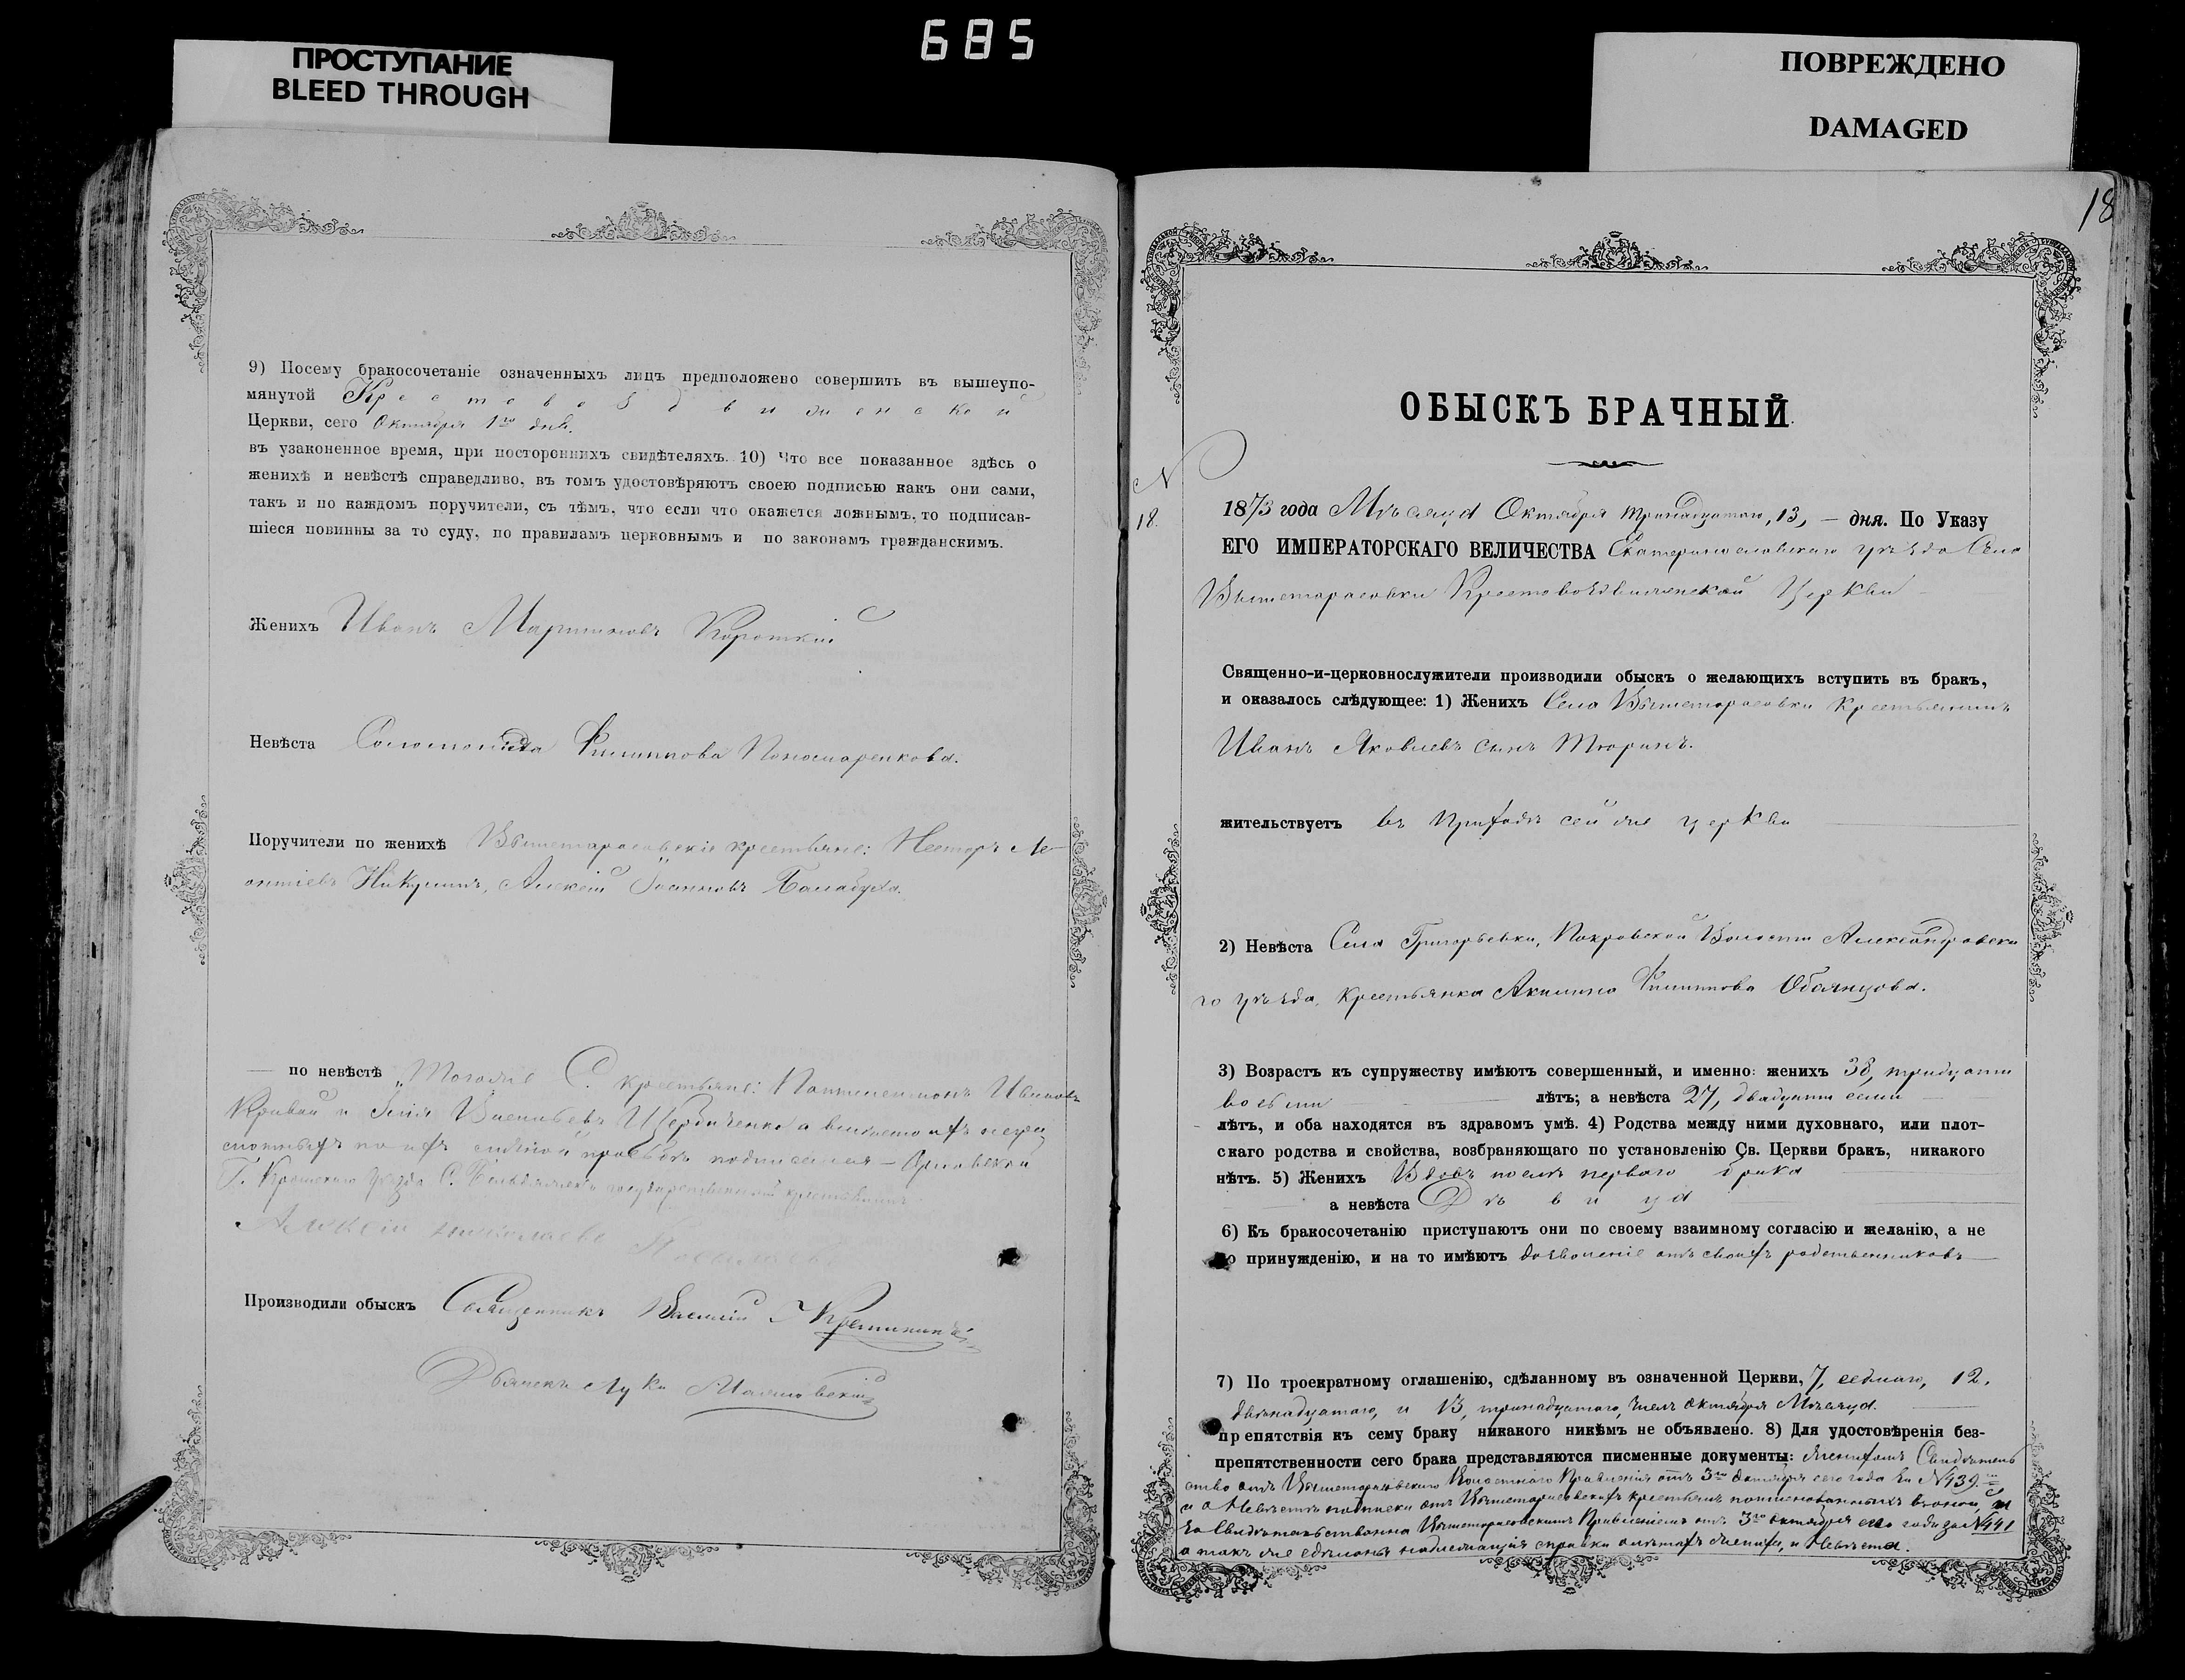 685
ПРОСТУПАНИЕ
BLEED THROUGH
ПОВРЕЖДЕНО
DAMAGED
9) Посему бракосочетаніе означенныхъ лицъ предположено совершить въ вышеупо-
мянутой Крестовоздвиженской
Церкви, сего Октября 1го дня.
въ узаконенное время, при постороннихъ свидѣтеляхъ. 10) Что все показанное здѣсь о
женихѣ и невѣстѣ справедливо, въ томъ удостовѣряютъ своею подписью какъ они сами,
такъ и по каждомъ поручители, съ тѣмъ, что если что окажется ложнымъ, то подписав-
шіеся повинны за то суду, по правиламъ церковнымъ и по законамъ гражданскимъ.
Женихъ Иванъ Мартиновъ Короткій
Невѣста Соломонида Филиппова Пономаренкова.
Поручители по женихѣ Вышетарасовскіе крестьяне: Несторъ Ле-
онтіевъ Никулинъ, Алексій Іоанновъ Балабуха.
— по невѣстѣ Тогоже С. крестьяне: Пантелеимонъ Ивановъ
Кривой и Илія Васильевъ Щербиченко а вмѣсто ихъ негра
мотныхъ по ихъ личной просьбѣ подписался —
Г. Кромскаго уезда С. государственный крестьянинъ
Алексій
Производили обыскъ Священникъ Василій
Дьячекъ Лука
18
ОБЫСКЪ БРАЧНЫЙ.
N
18.
1873 года Мѣсяца Октября тринадцатого, 13, — дня. По Указу
ЕГО ИМПЕРАТОРСКАГО ВЕЛИЧЕСТВА Екатеринославскаго уѣзда Села
Вышетарасовки Крестовоздвиженской Церкви
Священно-и-церковнослужители производили обыскъ о желающихъ вступить въ бракъ,
и оказалось слѣдующее: 1) Женихъ Села Вышетарасовки Крестьянинъ
Иванъ Яковлевъ сынъ Тюринъ.
жительствуетъ въ Приходѣ сей же церкви
2) Невѣста Села Григорьевки, Покровской Волости Александровска
го уѣзда, Крестьянка Акилина Филиппова Обоянцова.
3) Возрастъ къ супружеству имѣютъ совершенный, и именно: женихъ 38, тридцати
восьми лѣтъ; а невѣста 27, двадцати семи
лѣтъ, и оба находятся въ здравомъ умѣ. 4) Родства между ними духовнаго, или плот-
скаго родства и свойства, возбраняющаго по установленію Св. Церкви бракъ, никакого
нѣтъ. 5) Женихъ Вдовъ послѣ перваго брака
а невѣста Дѣвица
6) Къ бракосочетанію приступаютъ они по своему взаимному согласію и желанію, а не
по принужденію, и на то имѣютъ дозволеніе отъ своихъ родственниковъ
7) По троекратному оглашенію, сдѣланному въ означенной Церкви, 7, седмаго, 12.
двѣнадцатаго, и 13, тринадцатаго, числъ Октября Мѣсяца.
препятствія къ сему браку никакого никѣмъ не объявлено. 8) Для удостовѣренія без-
препятственности сего брака представляются писменные документы: Женихомъ Свидѣтель
ство отъ Вышетарасовскаго Волостнаго Правленія отъ 3го Октября сего года за N439.
и о Невѣстѣ подписки отъ Вышетарасовскихъ крестьянъ поименованныхъ въ оной, и
за Свидѣтельствована Вышетарасовскимъ Правленіемъ отъ 3го октября сего года за N441
а такъ же сдѣланы надлежащія справки о лѣтахъ жениха, и Невѣсты.